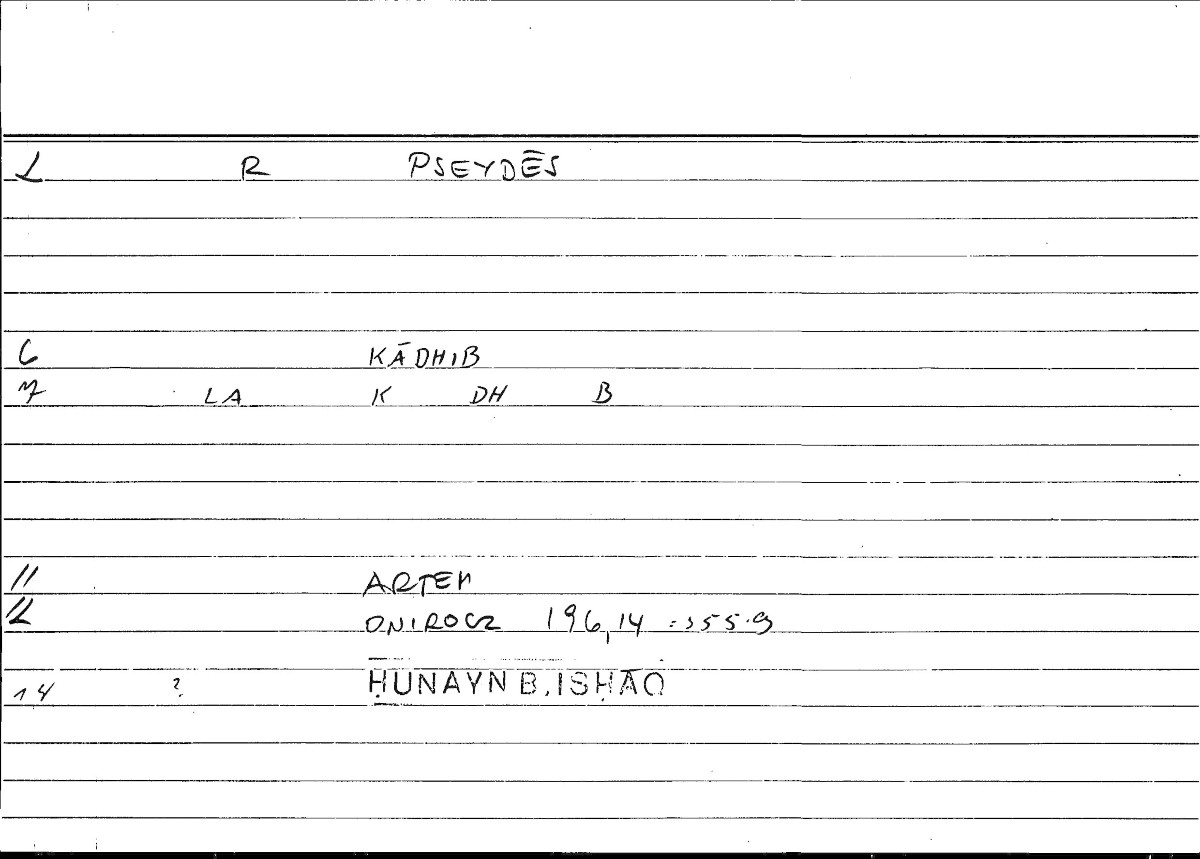 1 R PSEYDĒS
6 KĀDHIB
7 LA K DH B
11 ARTEM
12 ONIROCR 196,14 = 355.9
14 ? ḤUNAYN B. ISḤĀQ